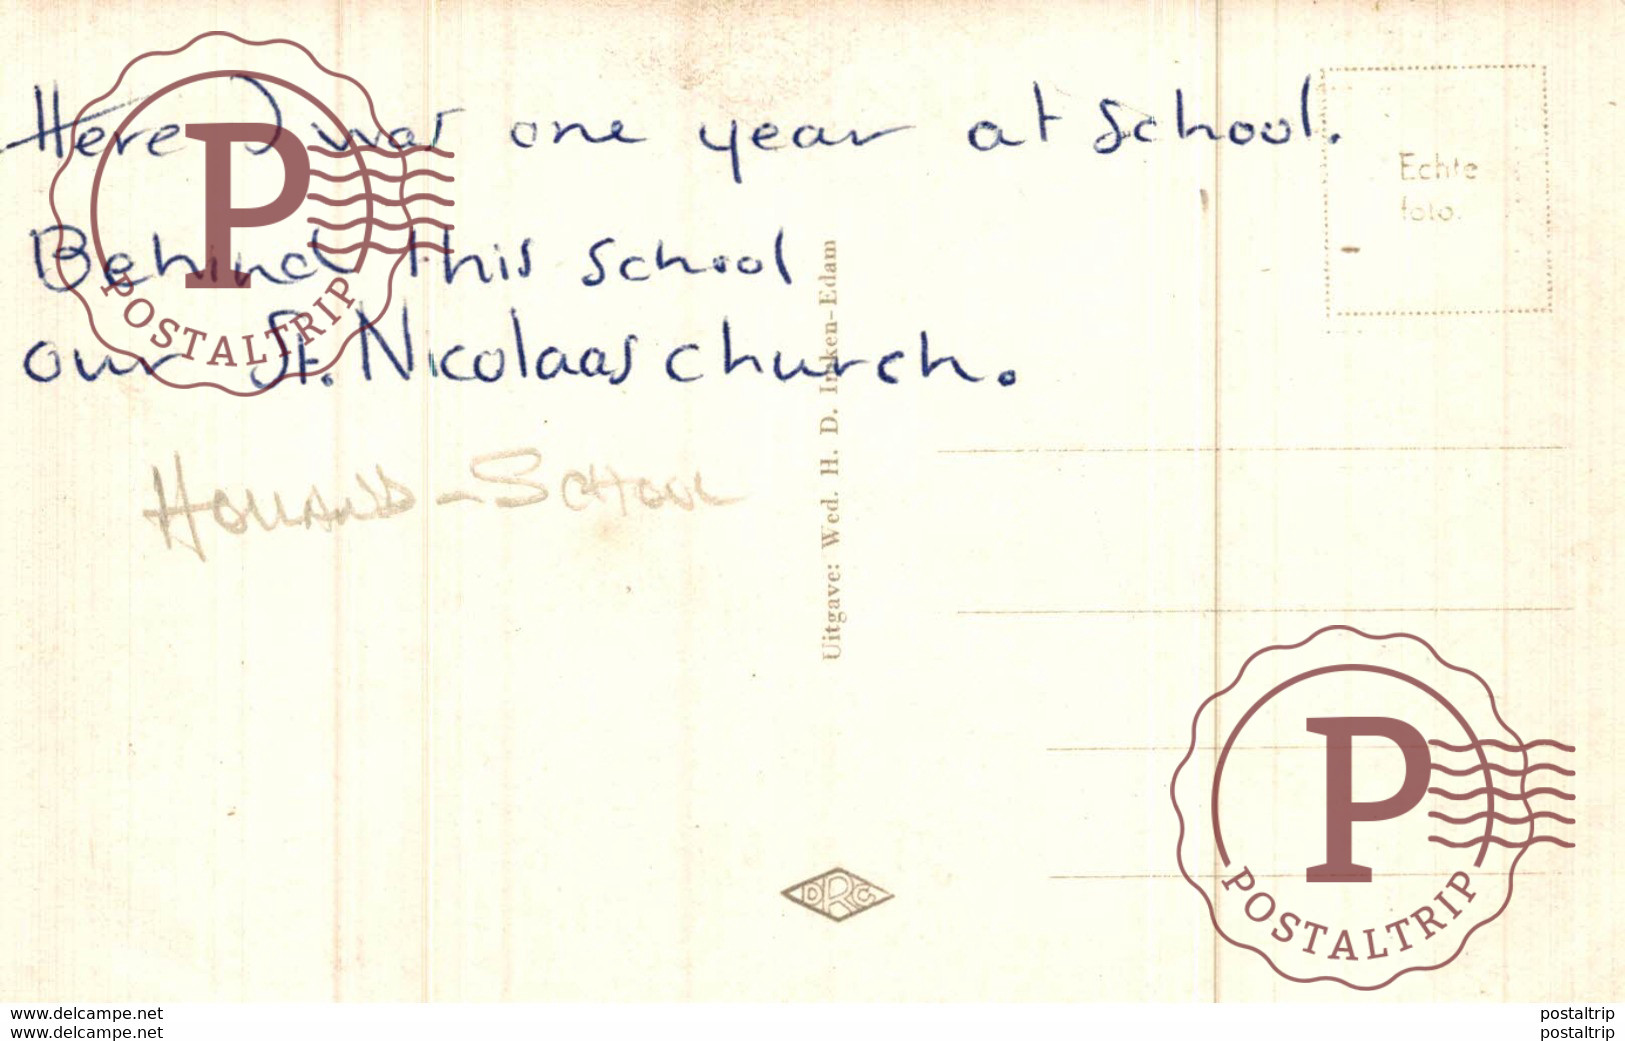 Here I was one year at school.
Behind this school
our St. Nicolaas church.
HOLLAND - SCHOOL
Echte
foto.
Uitgave: Wed. H. D. Inken-Edam
DRC
P
POSTALTRIP
P
POSTALTRIP
www.delcampe.net
www.delcampe.net
postaltrip
postaltrip